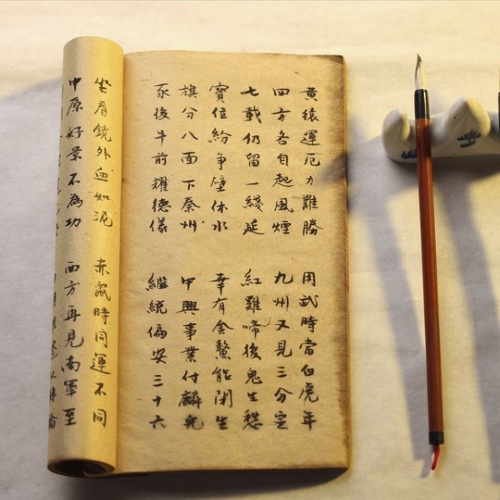 黃猿運厄力難勝 用武時當白虎年
四方各自起風煙 九州又見三分定
七載仍留一綫延 紅雞啼後鬼生愁
寶位紛爭壁休水 幸有金鰲能閉生
旗分八面下秦州 中興事業付麟兒
豕後牛前耀德儀 繼統偏安三十六
坐看鏡外血如泥 赤鼠時同運不同
中原好景不為功 西方再見南軍至